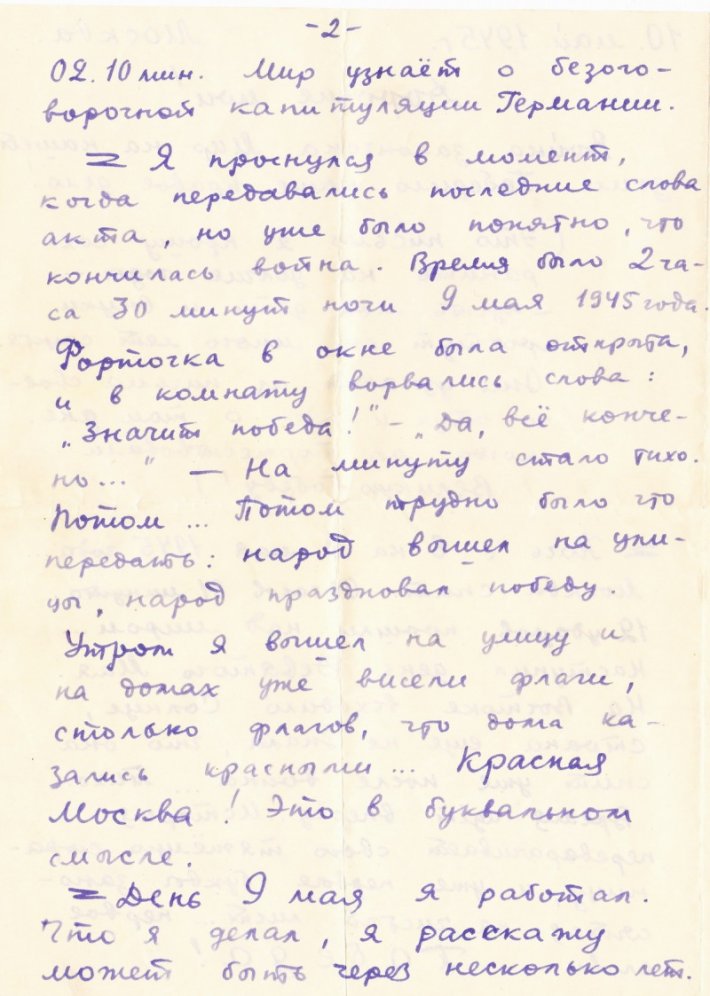 -2-
02.10 мин. Мир узнаёт о безого-
ворочной капитуляции Германии.
= Я проснулся в момент,
когда передавались последние слова
акта, но уже было понятно, что
кончилась война. Время было 2 ча-
са 30 минут ночи 9 мая 1945 года.
Форточка в окне была открыта,
и в комнату ворвались слова:
„Значит победа!" – „Да, всё конче-
но..." — На минуту стало тихо.
Потом ... Потом трудно было что
передать: народ вышел на ули-
цы, народ праздновал победу.
Утром я вышел на улицу и
на домах уже висели флаги,
столько флагов, что дома ка-
зались красными... Красная
Москва! Это в буквальном
смысле.
= День 9 мая я работал.
Что я делал, я расскажу
может быть через несколько лет.